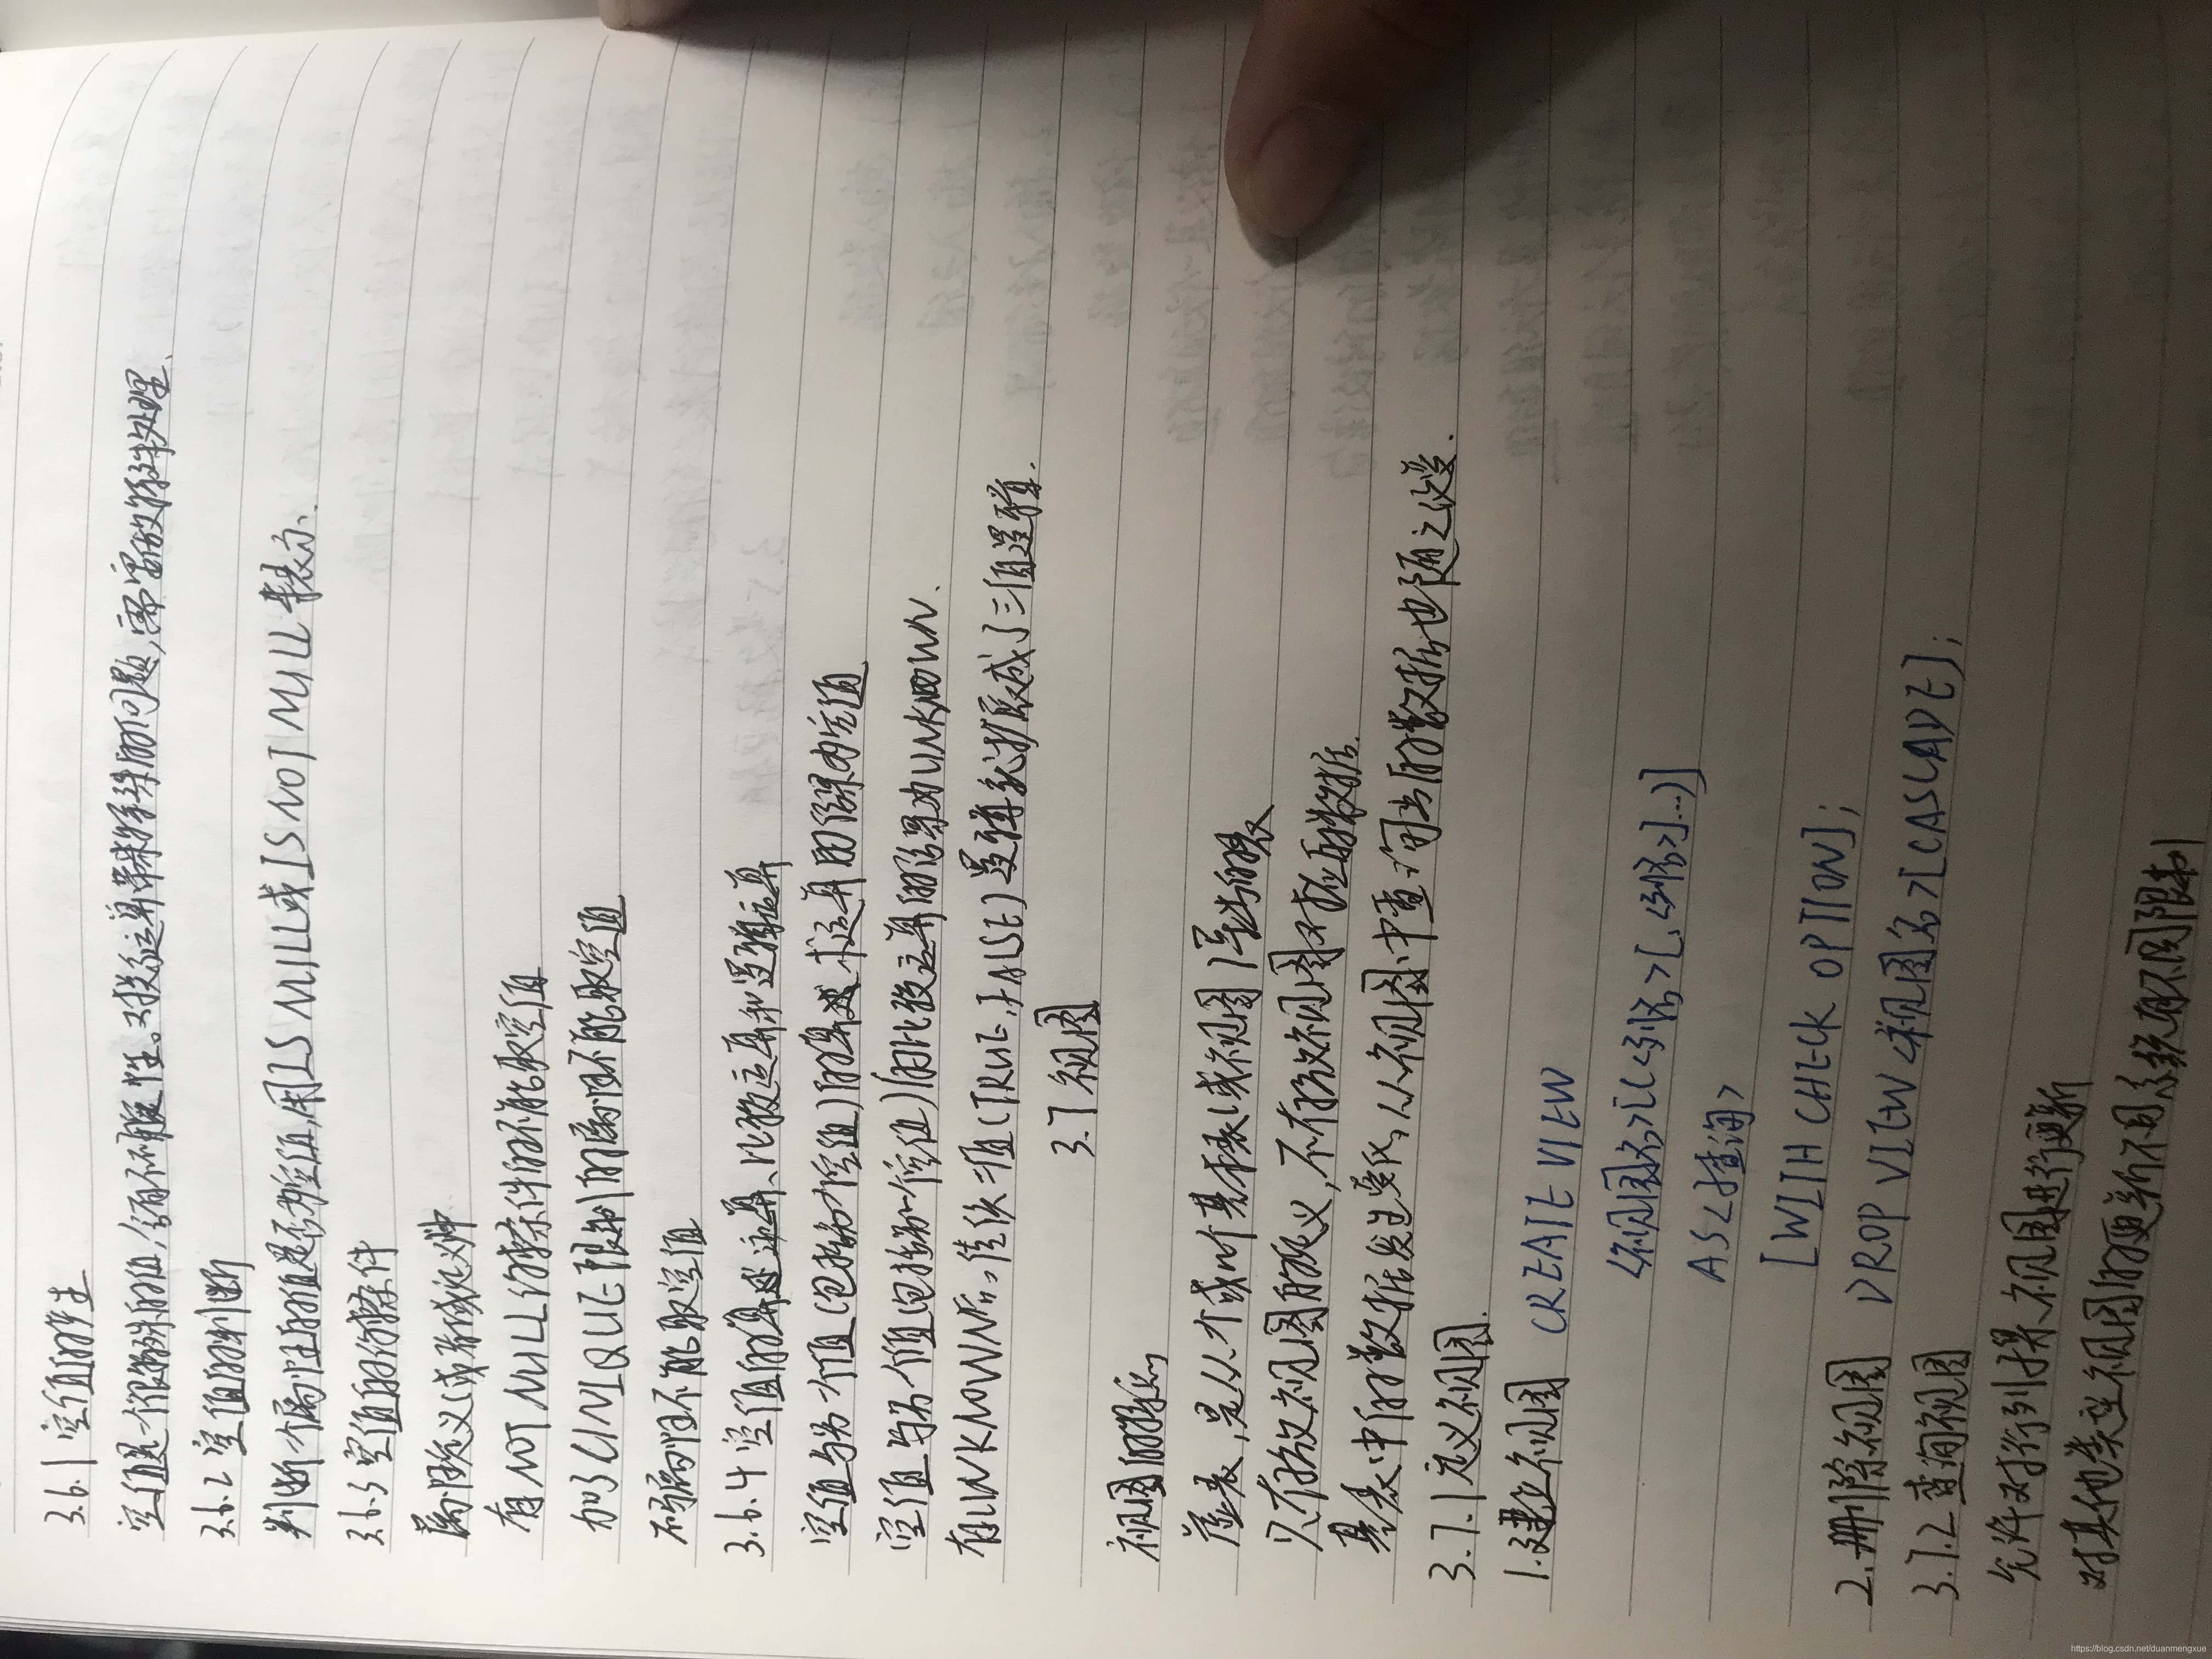 3.6.1 空值的产生
空值是一个很特殊的值,含有不确定性。对关系运算带来特殊的问题,需要做特殊处理.
3.6.2 空值的判断
判断一个属性的值是否为空值,用IS NULL或IS NOT NULL来表示.
3.6.3 空值的约束条件
属性定义(或者域定义)中
有NOT NULL约束条件的不能取空值
加了UNIQUE限制的属性不能取空值
码属性不能取空值
3.6.4 空值的算术运算、比较运算和逻辑运算
空值与另一个值(包括另一个空值)的算术运算的结果为空值
空值与另一个值(包括另一个空值)的比较运算的结果为UNKNOWN.
有UNKNOWN后,传统二值(TRUE,FALSE)逻辑就扩展成了三值逻辑.
3.7 视图
视图的特点
虚表,是从一个或几个基本表(或视图)导出的表
只存放视图的定义,不存放视图对应的数据.
基表中的数据发生变化,从视图中查询出的数据也随之改变.
3.7.1 定义视图.
1.建立视图 CREATE VIEW
<视图名>[(<列名>[,<列名>]...)]
AS<查询>
[WITH CHECK OPTION];
2.删除视图 DROP VIEW<视图名>[CASCADE];
3.7.2 查询视图
允许对行列子集视图进行更新
对其他类型视图的更新不同系统有不同限制
https://blog.csdn.net/duanmengxue